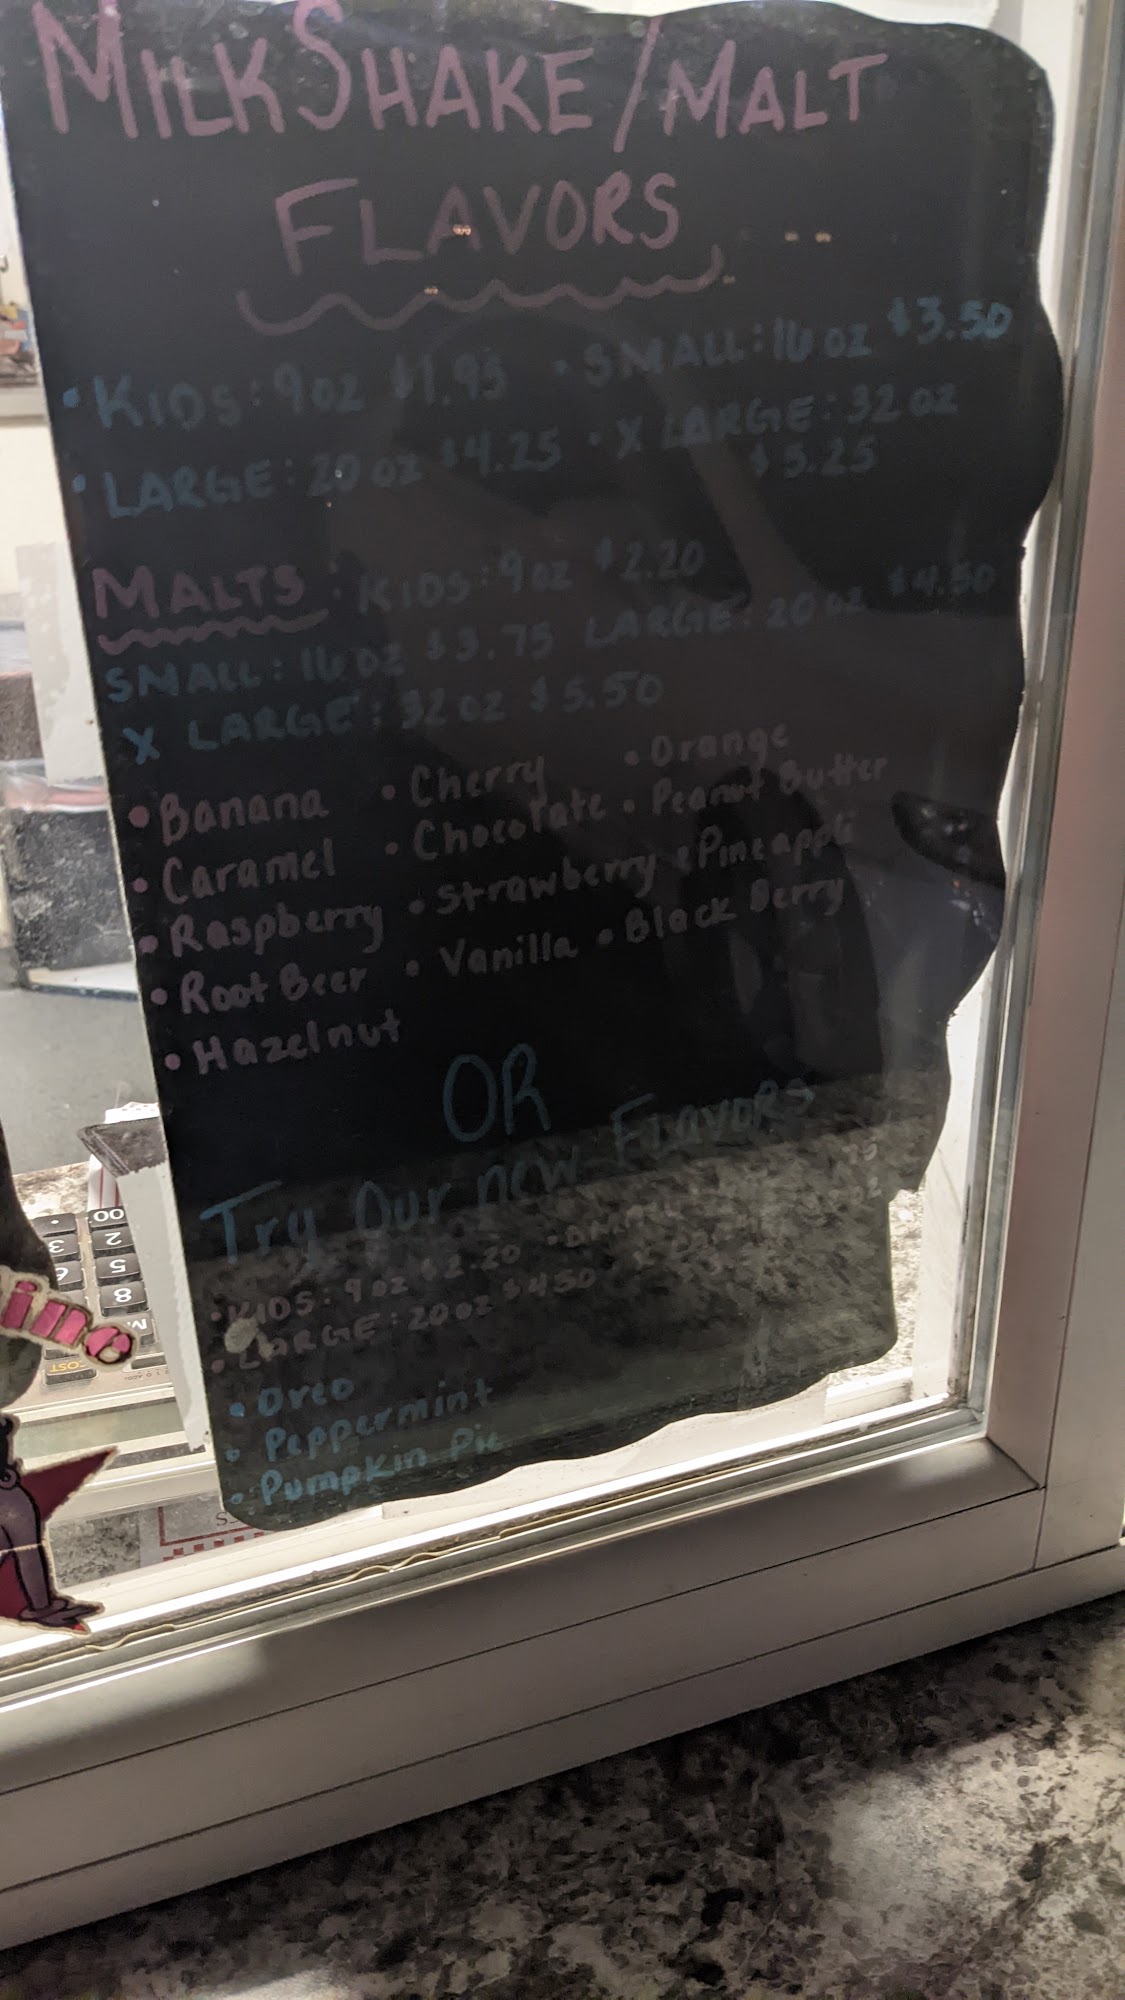 MILKSHAKE/MALT
FLAVORS
• KIDS: 9oz $1.95 • SMALL: 16 oz $3.50
• LARGE: 20 oz $4.25 • X LARGE: 32 oz
$5.25
MALTS: KIDS: 9oz $2.20
SMALL: 16 oz $3.75 LARGE: 20 oz $4.50
X LARGE: 32 oz $5.50
• Banana • Cherry • Orange
• Caramel • Chocolate • Peanut Butter
• Raspberry • Strawberry • Pineapple
• Root Beer • Vanilla • Black Berry
• Hazelnut
OR
Try Our new FLAVORS
• KIDS: 9oz $2.20
• LARGE: 20oz $4.50
• Oreo
• Peppermint
• Pumpkin Pie